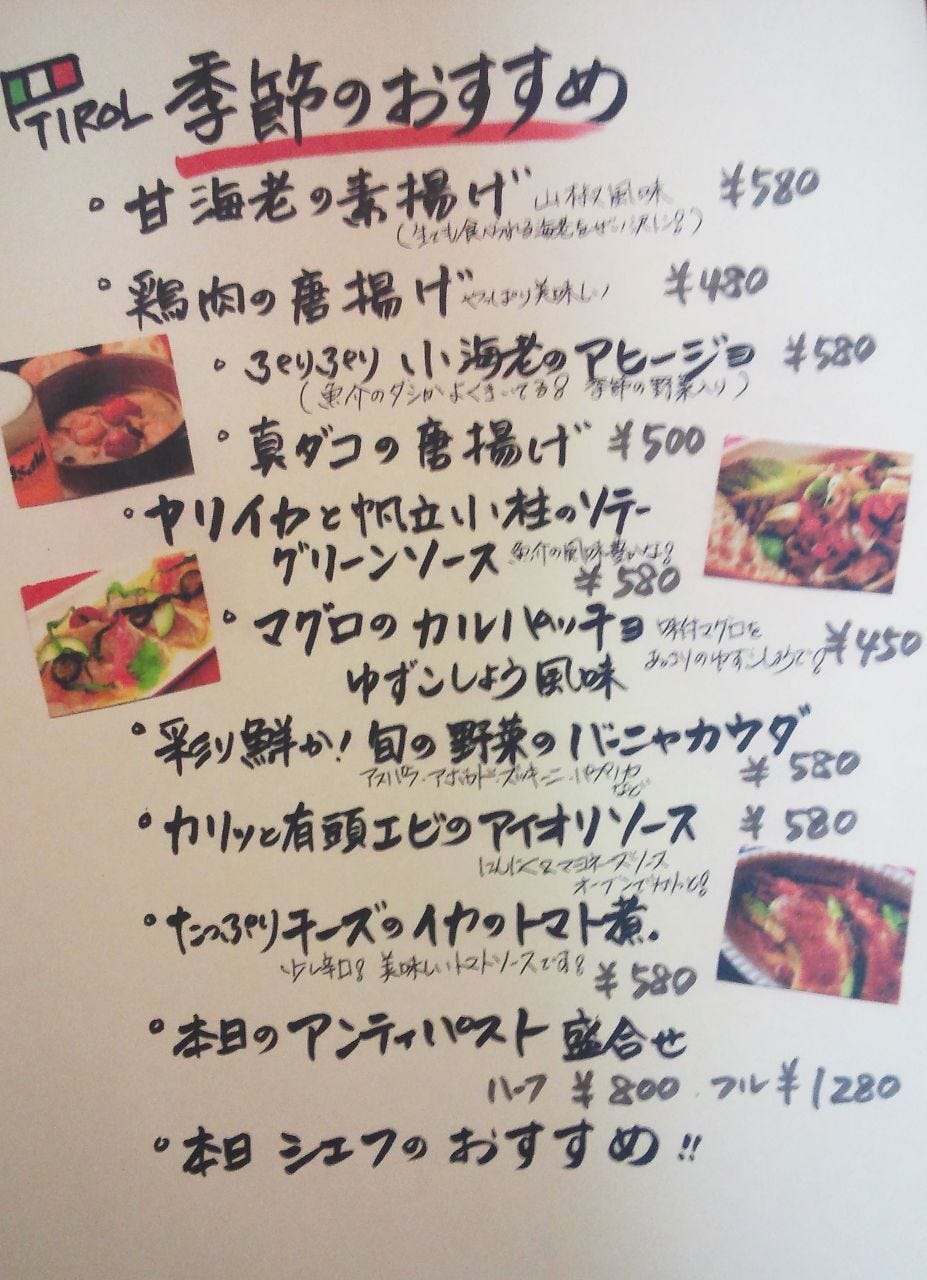 TIROL 季節のおすすめ
・甘海老の素揚げ 山椒風味 ¥580
(生でも食べれる海老をぜい沢に!)
・鶏肉の唐揚げ やっぱり美味しい ¥480
・ぷりぷり 小海老のアヒージョ ¥580
(魚介のダシがよくきいてる! 季節の野菜入り)
・真ダコの唐揚げ ¥500
・ヤリイカと帆立小柱のソテー
グリーンソース 魚介の風味豊かな!
¥580
・マグロのカルパッチョ 味付マグロを ¥450
ゆずこしょう風味 あっさりのゆずこしょうで!
・彩り鮮か!旬の野菜のバーニャカウダ
アスパラ・アボカド・ズッキーニ・パプリカ ¥580
など
・カリッと有頭エビのアイオリソース ¥580
にんにく&マヨネーズソース
オーブンでカリッと!
・たっぷりチーズのイカのトマト煮。
少し辛口! 美味しいトマトソースです!
¥580
・本日のアンティパスト 盛合せ
ハーフ ¥800 . フル ¥1280
・本日 シェフのおすすめ!!
Asahi